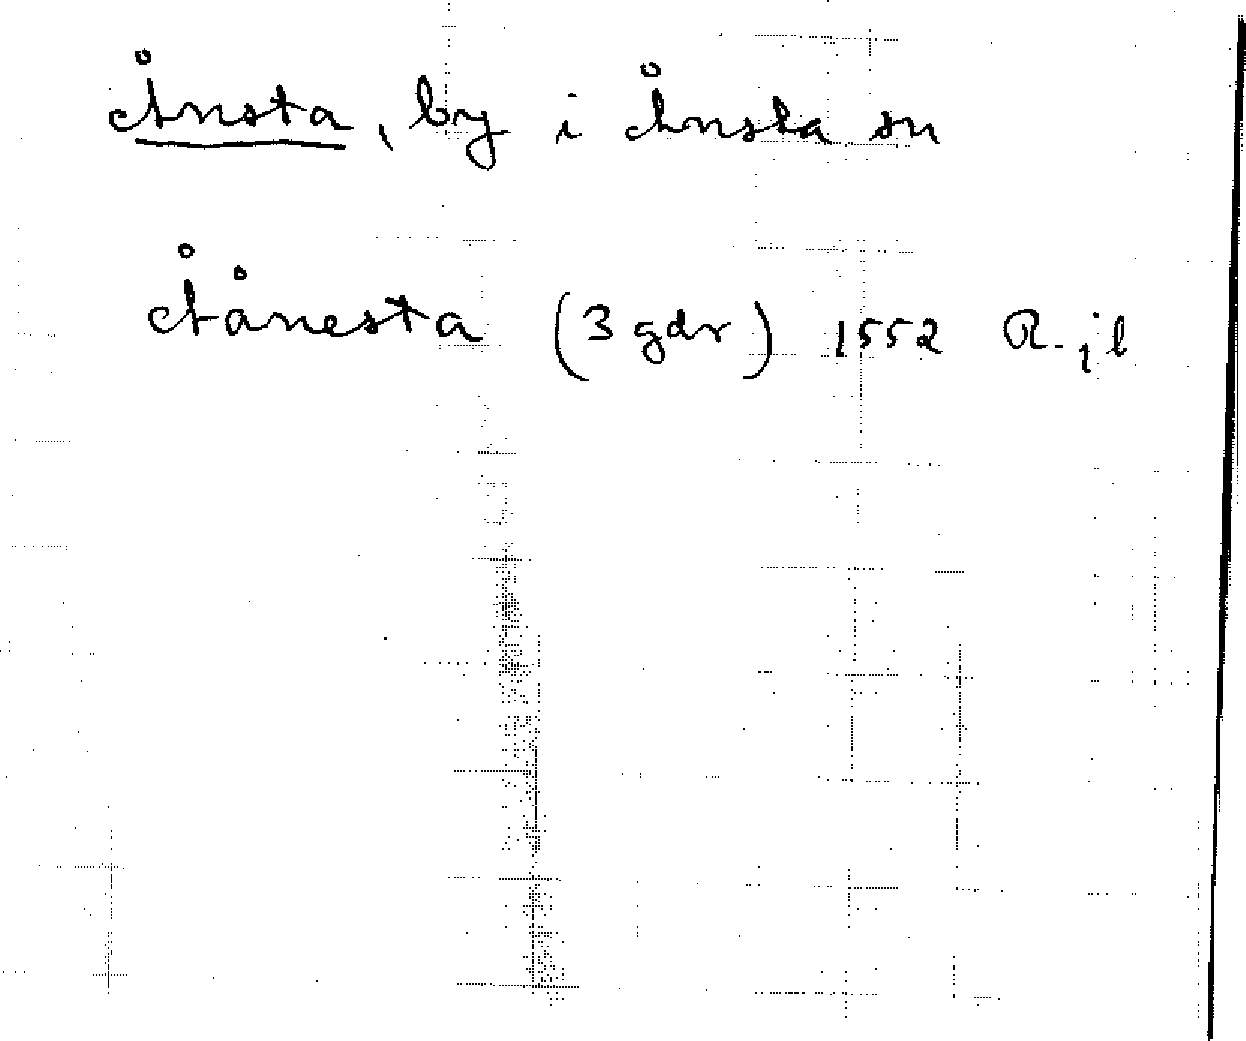 Ånsta, by i Ånsta sn
Åånesta (3 gdr) 1552 R.jb